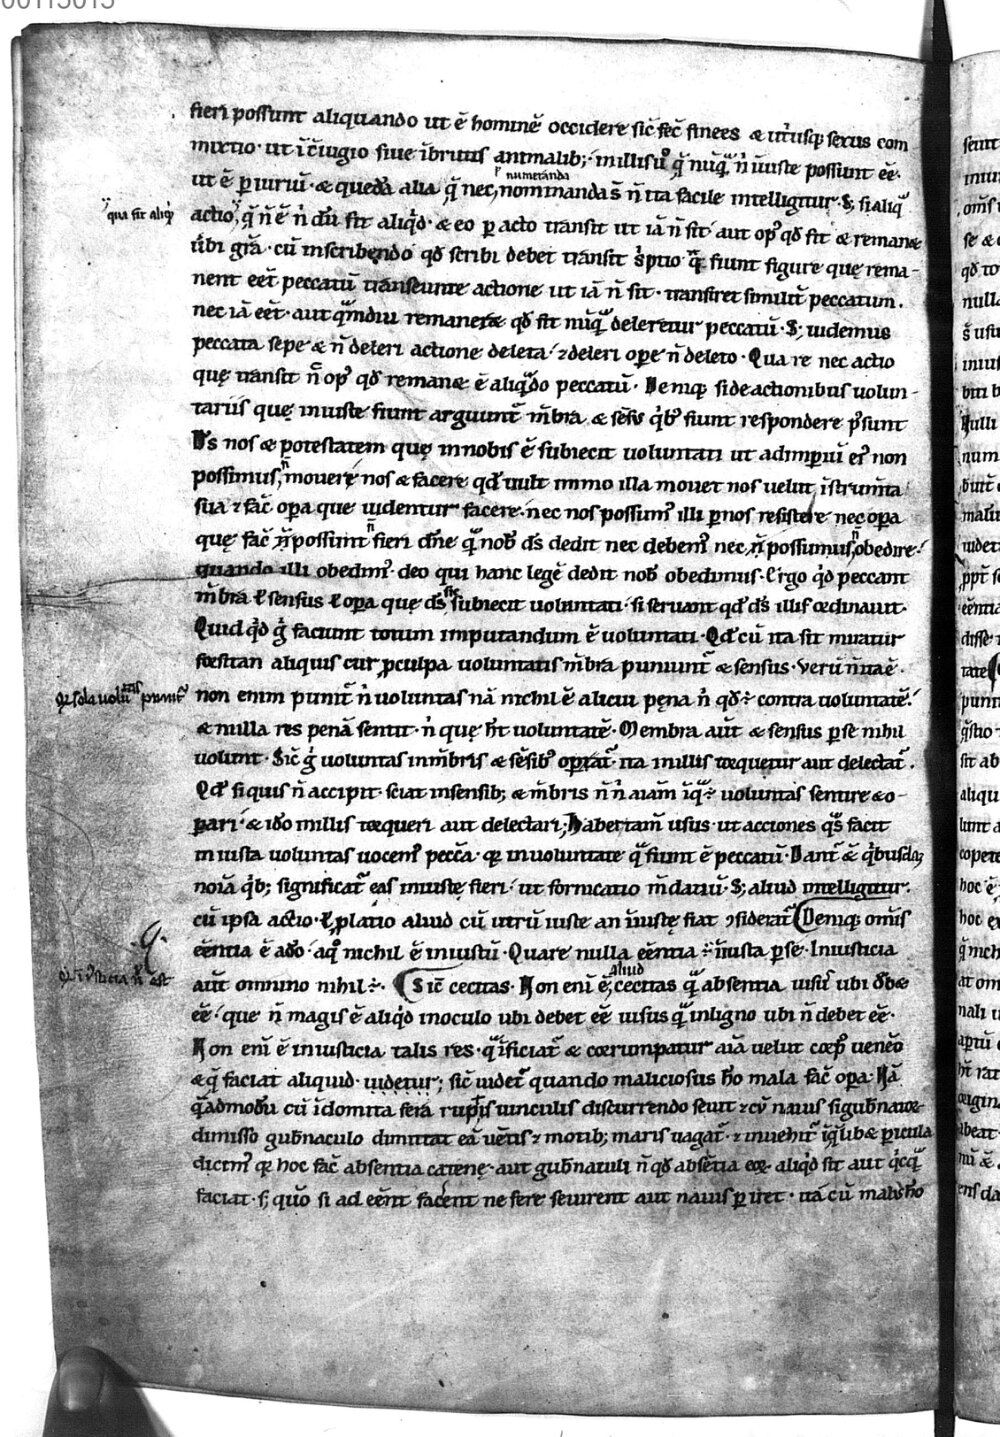 00113015
fieri possunt aliquando ut ē hominē occidere sic̄ fec̄ finees & utͥusq; sexus com
mixtio · ut ī ɔ̄iugio siue ībrutis animalib; · in illis u̾ q̄ nūq̄ n̄ īniuste possunt eē ·
numeranda
ut ē periuriū · & quedā alia q̄ nec nominanda s̄ n̄ ita facile intelligitur · S; si aliq̄
qua fit aliq̇d
actio q̄ n̄ ē n̄ dū fit aliq̇d · & eo peracto transit ut iā n̄ sit · aut op̾ qd̄ fit & remanet
ūbi gr̄a · cū inscribendo qd̄ scribi debet transit s̄ptio q̄ fiunt figure quę rema-
nent eēt peccatū transeunte actione ut iā n̄ sit · transiret similit̄ peccatum ·
nec iā eēt · aut q̄mdiu remaneret qd̄ fit nūq̄ deleretur peccatū · S; uidemus
peccata sepe & n̄ deleri actione deleta · ⁊ deleri ope n̄ deleto · Qua re nec actio
quę transit n̄ op̾ qd̄ remanet ē aliq̄do peccatū · Deniq; si de actionibus uolun-
tariis quę iniuste fiunt arguunt̄ m̄bra & sēsus q̇b; fiunt respondere p̄sunt
D̄s nos & potestatem quę in nobis ē subiecit uoluntati ut ad imperiū ei̾ non
possimus n̄ mouere nos & facere qd̄ uult immo illa mouet nos uelut īstrum̄ta
sua ⁊ fac̄ opera que uidentur facere · nec nos possum̾ illi per nos resistere nec opera
quę fac̄ possunt n̄ fieri dn̄e q̄ nob̄ d̄s dedit nec debem̾ nec possumus n̄ obedire ·
quando illi obedim̾ · deo qui hanc legē dedit nob̄ obedimus · Ergo q̇d peccant
m̄bra ł sensus ł opera quę d̄s sic subiecit uoluntati · si seruant qd̄ d̄s illis ordinauit ·
Quid q̇d g̊ faciunt totum imputandum ē uoluntati · Qd̄ cū ita sit miratur
forsitan aliquis cur p culpa uoluntatis m̄bra puniunt̄ & sensus · Verū n̄ ita ē ·
Qd̄ sola uolūtas punit̄
non enim punit̄ n̄ uoluntas nā nichil ē alicui pęna n̄ qd̄ ÷ contra uoluntatē ·
& nulla res penā sentit · n̄ que h̄t uoluntatē · Membra aūt & sensus per se nihil
uolunt · Sic̄ g̊ uoluntas in m̄bris & sēsib; operat̄ · ita in illis torquetur aut delectat̄ ·
Qd̄ si quis n̄ accipit · sciat in sensib; & m̄bris n̄ n̄ aīam ī q̄ ÷ uoluntas sentire & o-
perari · & ido̊ in illis torqueri aut delectari · Habet tam̄ usus · ut acciones q̄s facit
iniusta uoluntas uocem̾ pecc̄a · qr̄ in uoluntate q̄ fiunt ē peccatū · Dant̄ & q̇busdā
noīa q̇b; significat̄ eas iniuste fieri · ut fornicatio m̄daciū · S; aliud intelligitur ·
cū ipsa actio · ł platio aliud cū utrū iuste an īniustę fiat ɔsiderat̄ Deniq; om̄s
eēntia ē a do̊ · a q̊ nichil ē iniustū · Quare nulla eēntia ÷ īniusta per se · Iniusticia
Qd̄ īiusticia n̄ est
aūt omnino nihil ÷ · Sic̄ cecitas · Non eni ē aliud cecitas q̄ absentia uisus ubi deb&
eē · que n̄ magis ē aliq̇d in oculo ubi debet eē uisus q̄ in ligno ubi n̄ debet eē ·
Non eni ē iniusticia talis res · q̄ īficiat̄ & corrumpatur aīā uelut corp̄ ueneō
& q̄ faciat aliquid · uidetur; sic̄ uidet̄ quando maliciosus h̊o mala fac̄ opera · Nā
q̄admodū cū īdomita fera ruptis uinculis discurrendo seuit ⁊ cū nauis si gub̄nator
dimisso gub̄naculo dimittat eā uētis ⁊ motib; maris uagat̄ · ⁊ inuehit̄ ī q̄lib& pericula
dicim̾ qr̄ hoc fac̄ absentia catenę · aut gub̄natuli n̄ qd̄ absētia eor̄ aliq̇d sit aut q̇cq̄
faciat · s; quo̊ si ad eēnt facerent ne fere seuirent aut nauis periret · ita cū malus h̊o